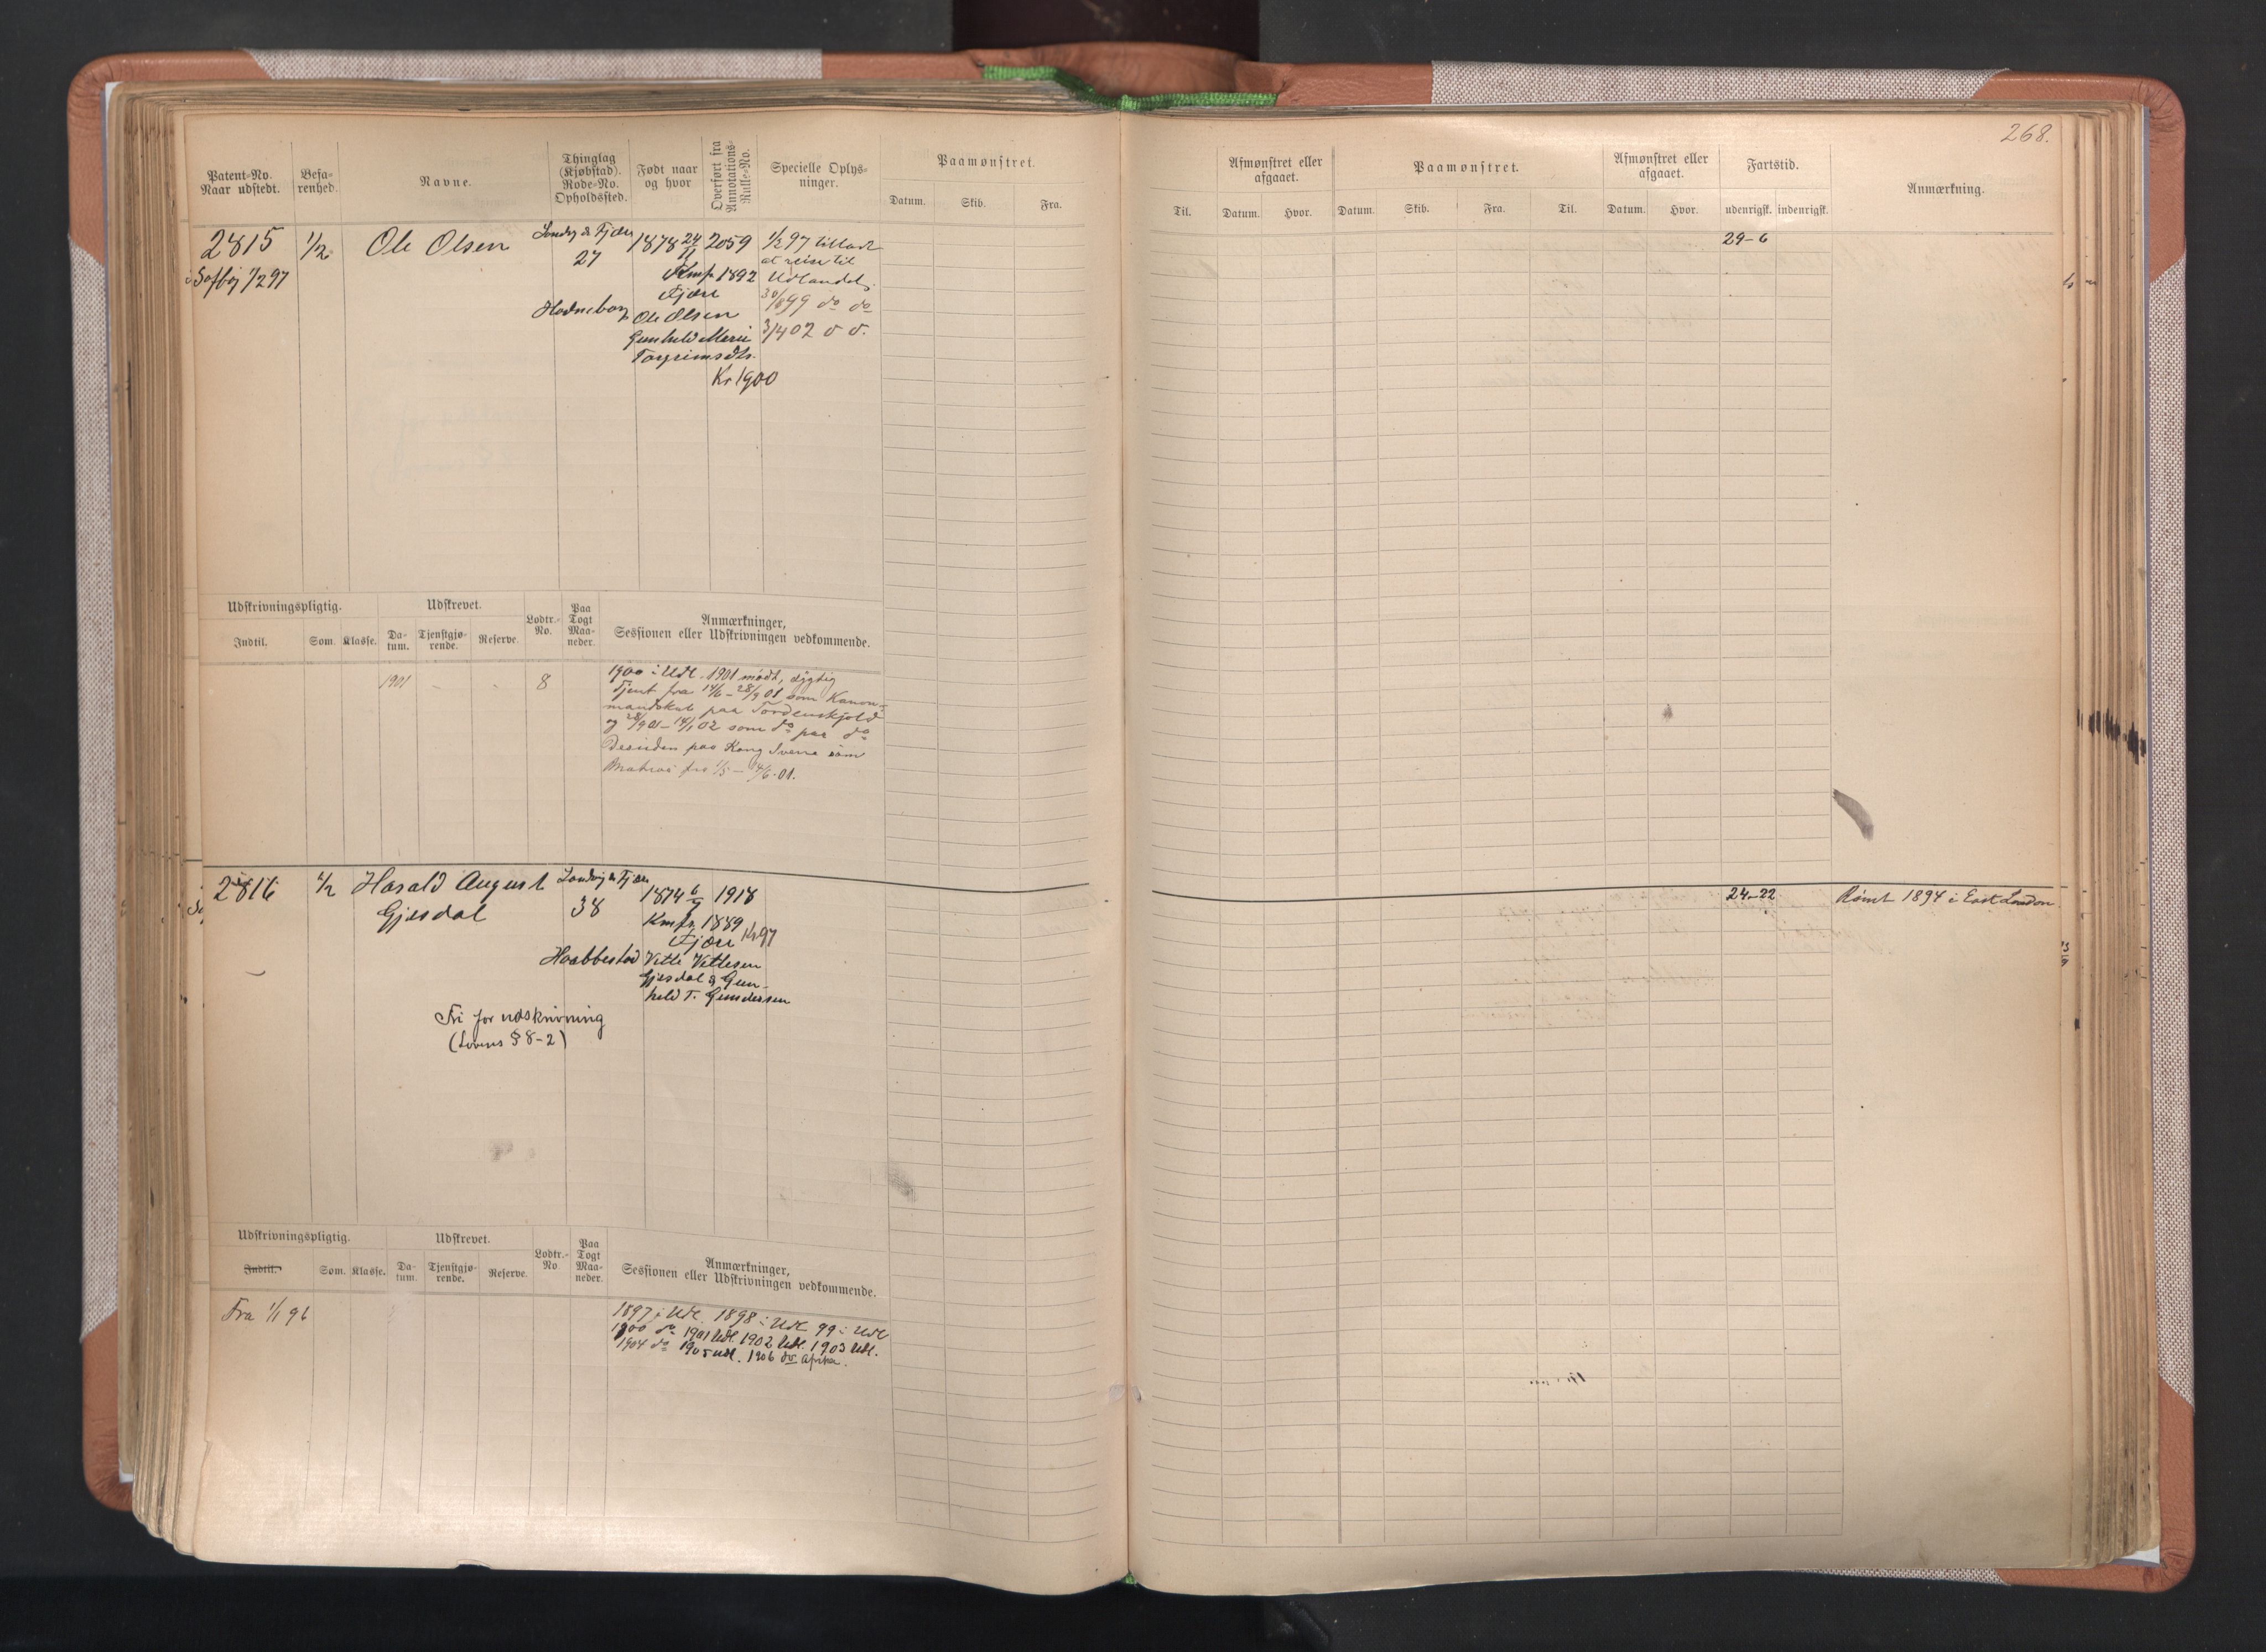 268.
Patent-No. Naar udstedt.
Befarenhed.
Navne.
Thinglag (Kjøbstad). Rode-No. Opholdssted.
Født naar og hvor
Overført fra Annotations-Rulle-No.
Specielle Oplysninger.
Paamønstret.
Datum. Skib. Fra.
Til.
Afmønstret eller afgaaet.
Datum. Hvor.
Paamønstret.
Datum. Skib. Fra. Til.
Afmønstret eller afgaaet.
Datum. Hvor.
Fartstid.
udenrigsk. indenrigsk.
Anmærkning.
2815 1/2 Ole Olsen
Søfbog 1/2 97
Landvig & Fjære
27
Hodneborg
1878 24/11 2059
Kmf. 1892
Fjære
Ole Olsen
Gunhild Marie
Torgrimsdtr.
Kr 1900
1/2 97 tilladt
at reise til
Udlandet.
30/8 99 do do
3/4 02 d d.
29-6
Udskrivningspligtig.
Indtil. Som. Klasse.
Udskrevet.
Datum. Tjenstgjørende. Reserve.
Lodtr.-No.
Paa Togt Maaneder.
Anmærkninger,
Sessionen eller Udskrivningen vedkommende.
1901 - - 8
1900 i Udl. 1901 mødt, dygtig
Tjent fra 14/6 - 28/9 01 som Kanon-
mandskab paa Tordenskjold
og 28/9 01 - 14/1 02 som do paa do
Desuden paa Kong Sverre som
Matros fra 1/5 - 14/6 01.
2816 1/2 Harald August
Gjesdal
Landvig & Fjære
38
Habbestad
1874 6/7 1918
Kmf. 1889
Fjære Kr 97
Vetle Vetlesen
Gjesdal & Gun-
hild T. Gundersen
Fri for udskrivning
(Lovens § 8-2)
24-22
Rømt 1894 i East London
Udskrivningspligtig.
Indtil. Som. Klasse.
Udskrevet.
Datum. Tjenstgjørende. Reserve.
Lodtr.-No
Paa Togt Maaneder.
Anmærkninger,
Sessionen eller Udskrivningen vedkommende.
Fra 1/1 96
1897 i Udl. 1898 i Udl. 99 i Udl
1900 do 1901 Udl. 1902 Udl. 1903 Udl.
1904 do 1905 Udl. 1906 do Afrika.